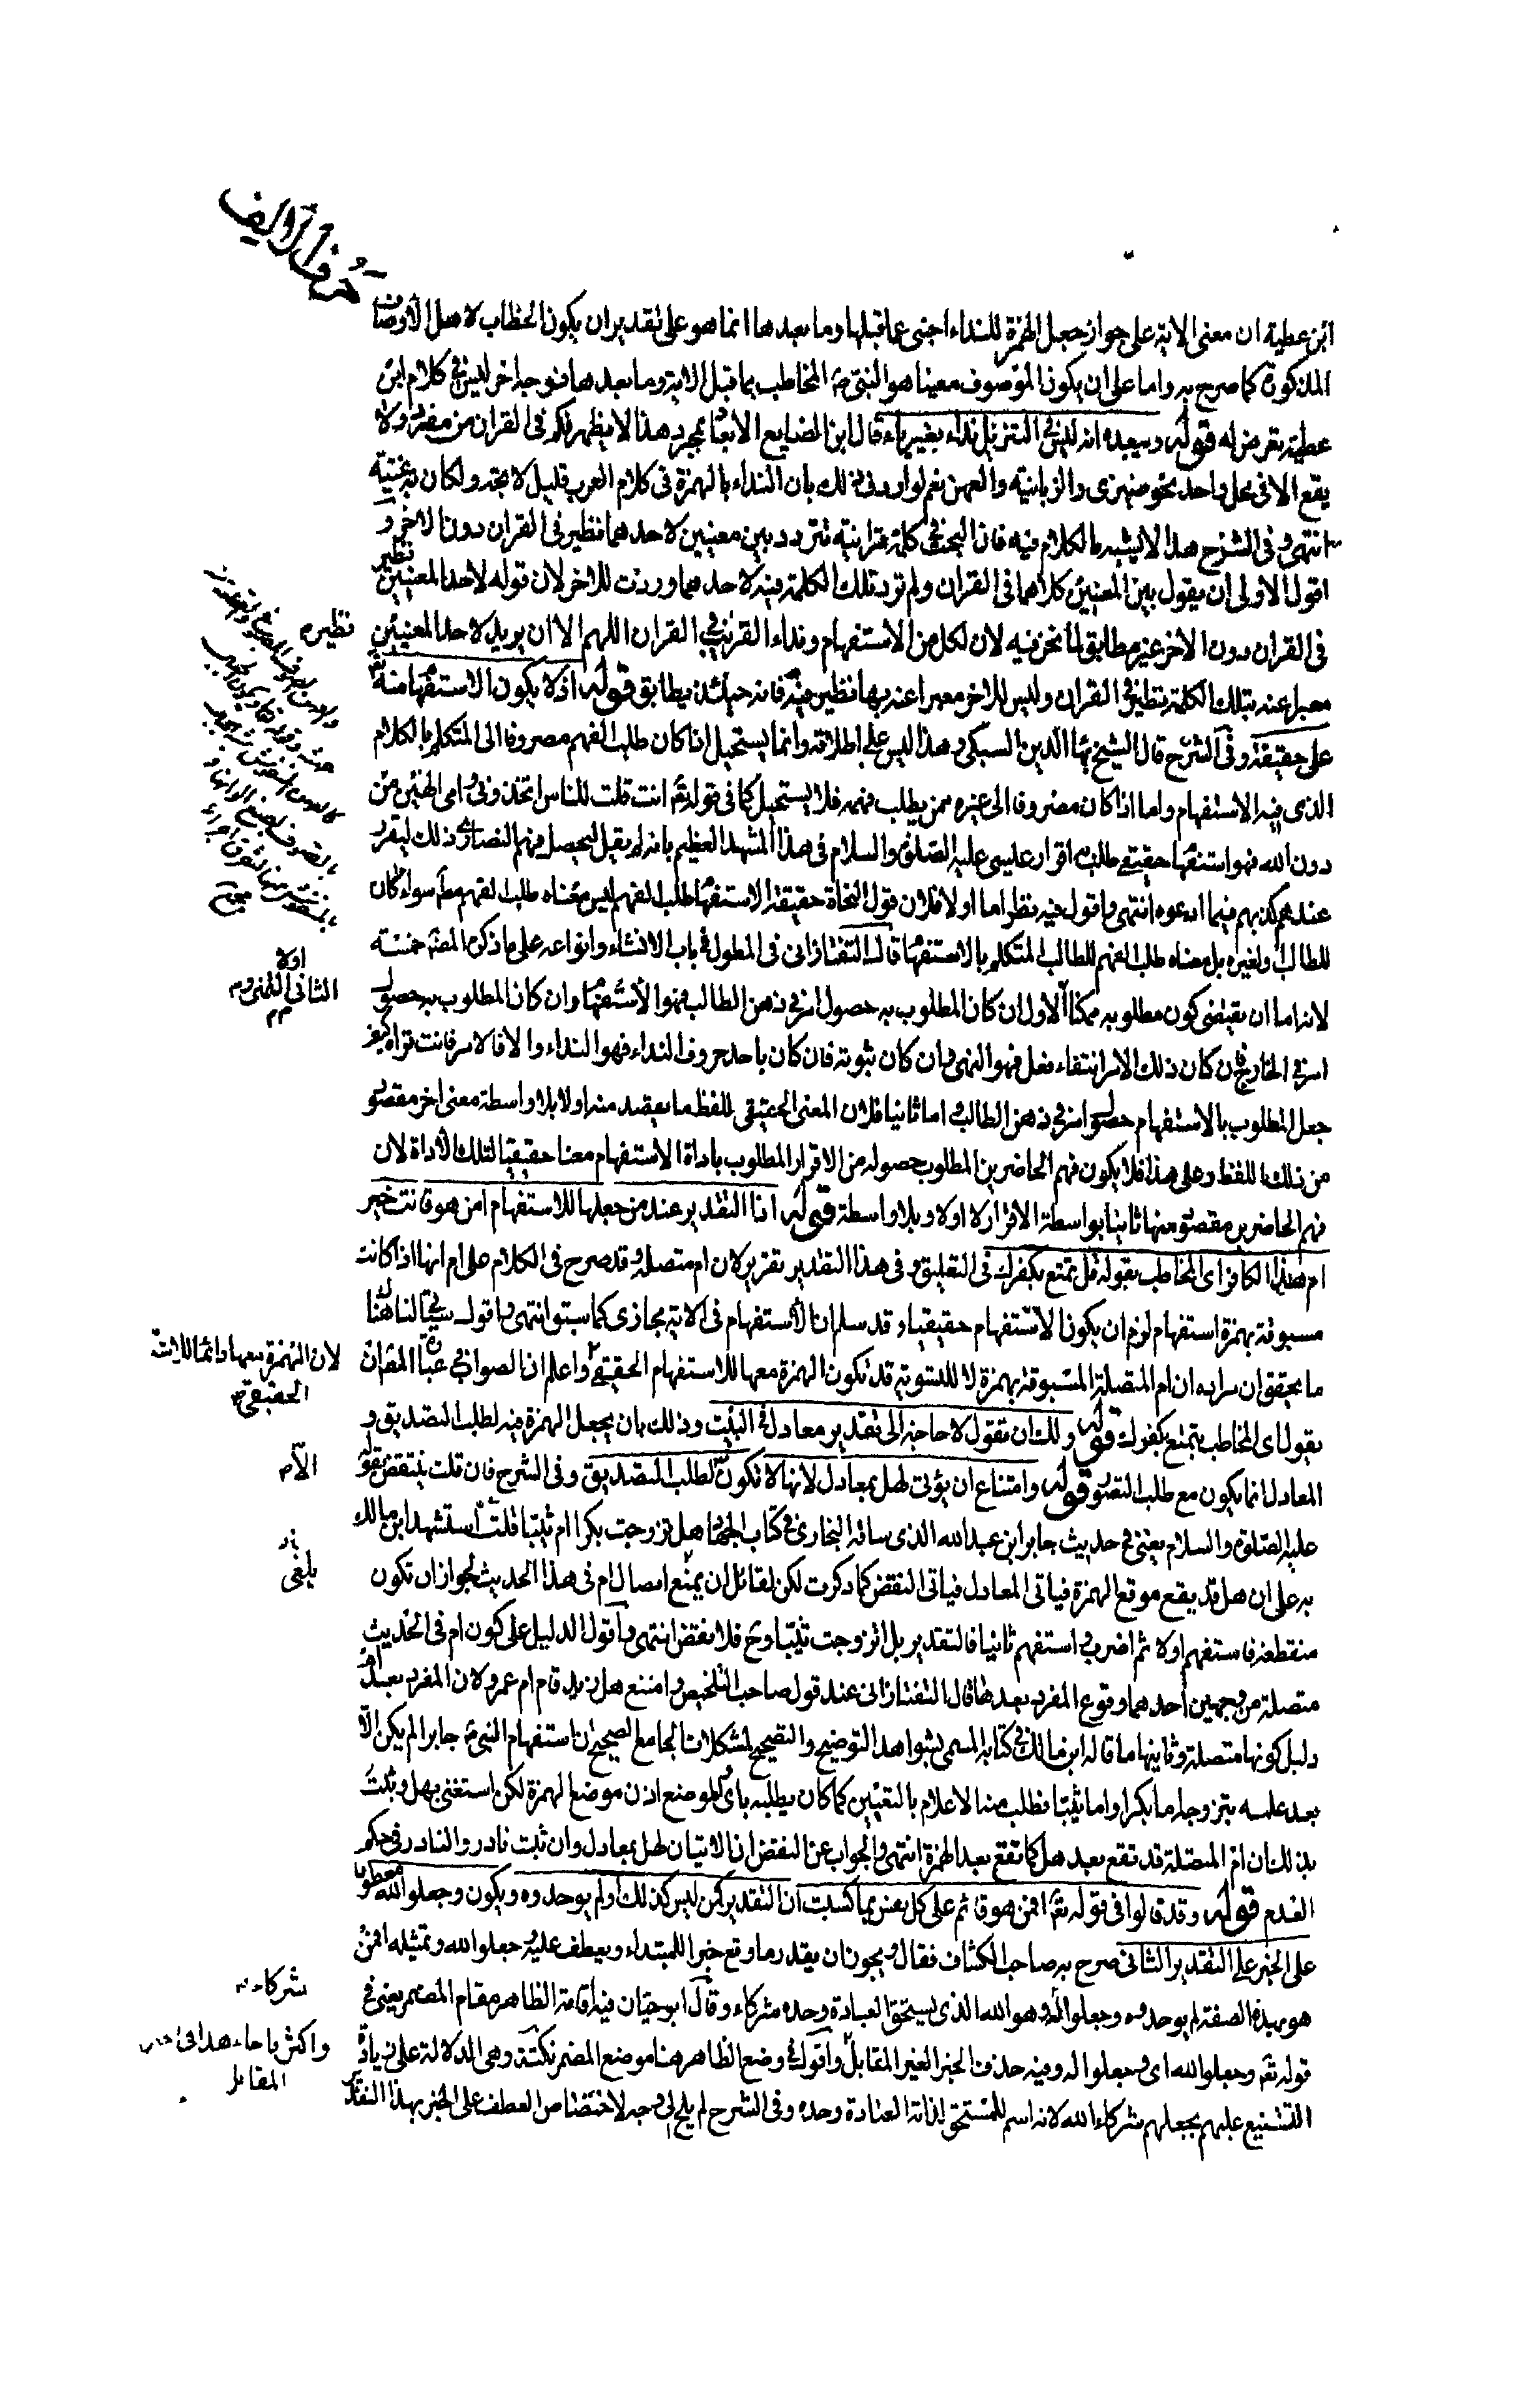 حرف الالف
ابن عطية ان معنى الاية على جواز جعل الهمزة للنداء اجنبى عما قبلها وما بعدها انما هو على تقدير ان يكون الخطاب لاهل الاوصاف
المذكورة كما صرح به واما على ان يكون الموصوف معينا هو النبى المخاطب بما قبل الاية وما بعدها فتوجيه اخر ليس فى كلام ابن
عطية تعرض له قوله ويبعده انه ليس فى التنزيل نداء بغير ياء قال ابن الصايع الابعاد بمجرد هذا لا يظهر فكم فى القران من مفرد ولا
يقع الا فى محل واحد نحو ضيزى والزبانية والعهن نعم لو ارد فى ذلك بان النداء بالهمزة فى كلام العرب قليل لاتجه ولكان به غنية
انتهى وفى الشرح هذا لا يشبه ما الكلام فيه فان البحث فى كلمة قرانية تتردد بين معنيين لاحدهما نظير فى القران دون الاخر و
اقول الاولى ان يقول بين المعنيين كلاهما فى القران ولم ترد تلك الكلمة فيه لاحدهما ووردت للاخر لان قوله لاحد المعنيين نظير
فى القران دون الاخر غير مطابق لما نحن فيه لان لكل من الاستفهام ونداء القريب فى القران اللهم الا ان يريد لاحد المعنيين
نظيره
معبرا عنه بتلك الكلمة نظير فى القران وليس للاخر معبرا عنه بها نظير فيه فانه حينئذ يطابق قوله اذ لا يكون الاستفهام منه
على حقيقته وفى الشرح قال الشيخ بهاء الدين السبكى وهذا ليس على اطلاقه وانما يستحيل اذا كان طلب الفهم مصروفا الى المتكلم بالكلام
الذى فيه الاستفهام واما اذا كان مصروفا الى غيره ممن يطلب فهمه فلا يستحيل كما فى قوله تع انت قلت للناس اتخذونى وامى الهين من
دون الله فهو استفهام حقيقى طلب به اقرار عيسى عليه الصلوة والسلام فى هذا المشهد العظيم بانه لم يقل ليحصل فهم النصارى ذلك ليتقرر
عندهم كذبهم فيما ادعوه انتهى واقول فيه نظر اما اولا فلان قول النحاة حقيقة الاستفهام طلب الفهم ليس معناه طلب الفهم مطلقا سواء كان
للطالب او لغيره بل معناه طلب الفهم للطالب المتكلم بالاستفهام قال التفتازانى فى المطول فى باب الانشاء وانواعه على ما ذكره المصنف خمسة
لانه اما ان يقتضى كون مطلوبه ممكنا الاول ان كان المطلوب به حصول امر فى ذهن الطالب فهو الاستفهام وان كان المطلوب به حصول
اولا الثانى التمنى و
امر فى الخارج فان كان ذلك الامر انتفاء فعل فهو النهى وان كان ثبوته فان كان باحد حروف النداء فهو النداء والا فالامر فانت تراه كيف
جعل المطلوب بالاستفهام حصول امر فى ذهن الطالب واما ثانيا فلان المعنى الحقيقى للفظ ما يقصد منه اولا بلا واسطة معنى اخر مقصود
من ذلك اللفظ وعلى هذا فلا يكون فهم الحاضرين المطلوب حصوله من الاقرار المطلوب باداة الاستفهام معنا حقيقيا لتلك الاداة لان
فهم الحاضرين مقصود منها ثانيا بواسطة الاقرار لا اولا وبلا واسطة قوله اذ التقدير عند من جعلها للاستفهام امن هو قانت خير
ام هذا الكافر اى المخاطب بقوله قل تمتع بكفرك فى التعليق وفى هذا التقدير تقرير لان ام متصلة وقد صرح فى الكلام على ام انها اذا كانت
مسبوقة بهمزة استفهام لزم ان يكون الاستفهام حقيقيا وقد سلم ان الاستفهام فى الاية مجازى كما سبق انتهى واقول سيجئ لنا هناك
ما يحقق ان مراده ان ام المتصلة المسبوقة بهمزة لا للتسوية قد تكون الهمزة معها للاستفهام الحقيقى واعلم ان الصواب فى عبارة المص ان
لان الهمزة معها دائما للاستفهام الحقيقى
يقول اى المخاطب بتمتع بكفرك قوله ولك ان تقول لا حاجة الى تقدير معادل فى البيت وذلك بان يجعل الهمزة فيه لطلب التصديق و
المعادل انما يكون مع طلب التصور قوله وامتناع ان يؤتى لهل بمعادل لانها لا تكون الا لطلب التصديق وفى الشرح فان قلت ينتقض بقوله
عليه الصلوة والسلام يعنى فى حديث جابر ابن عبد الله الذى ساقه البخارى فى كتاب الجهاد هل تزوجت بكرا ام ثيبا قلت استشهد ابن مالك
به على ان هل قد يقع موقع الهمزة فياتى المعادل فياتى النقض كما ذكرت لكن لقائل ان يمنع اتصال ام فى هذا الحديث لجواز ان تكون
منقطعة فاستفهم اولا ثم اضرب واستفهم ثانيا فالتقدير بل اتزوجت ثيبا وح فلا نقض انتهى واقول الدليل على كون ام فى الحديث
متصلة من وجهين احدهما وقوع المفرد بعدها قال التفتازانى عند قول صاحب التلخيص وامتنع هل زيد قام ام عمرو لان المفرد بعد ام
دليل كونها متصلة وثانيها ما قاله ابن مالك فى كتابه المسمى بشواهد التوضيح والتصحيح لمشكلات الجامع الصحيح ان استفهام النبى جابرا لم يكن الا
بعد علمه بتزوجه اما بكرا واما ثيبا فطلب منه الاعلام بالتعيين كما كان يطلبه باى فالموضع اذن موضع الهمزة لكن استغنى بهل وثبت
بذلك ان ام المتصلة قد تقع بعد هل كما تقع بعد الهمزة انتهى والجواب عن النقض ان الاتيان لهل بمعادل وان ثبت نادر والنادر فى حكم
العدم قوله وقد قالوا فى قوله تع افمن هو قائم على كل نفس بما كسبت ان التقدير كمن ليس كذلك او لم يوحدوه ويكون وجعلوا لله معطوفا
على الخبر على التقدير الثانى صرح به صاحب الكشاف فقال ويجوز ان يقدر ما وقع خبرا للمبتداء ويعطف عليه وجعلوا لله وتمثيله افمن
هو بهذه الصفة لم يوحدوه وجعلوا له وهو الله الذى يستحق العبادة وحده شركاء وقال ابو حيان فيه اقامة الظاهر مقام المضمر يعنى فى
قوله تع وجعلوا لله اى وجعلوا له وفيه حذف الخبر الغير المقابل واقول فى وضع الظاهر هنا موضع المضمر نكتة وهى الدلالة على زيادة
شركاء
واكثر ما جاء هذا
المقابل
التشنيع عليهم بجعلهم شركاء الله لانه اسم للمستحق لذاته العبادة وحده وفى الشرح لم يلح لى وجه لاختصاص العطف على الخبر بهذا التقدير